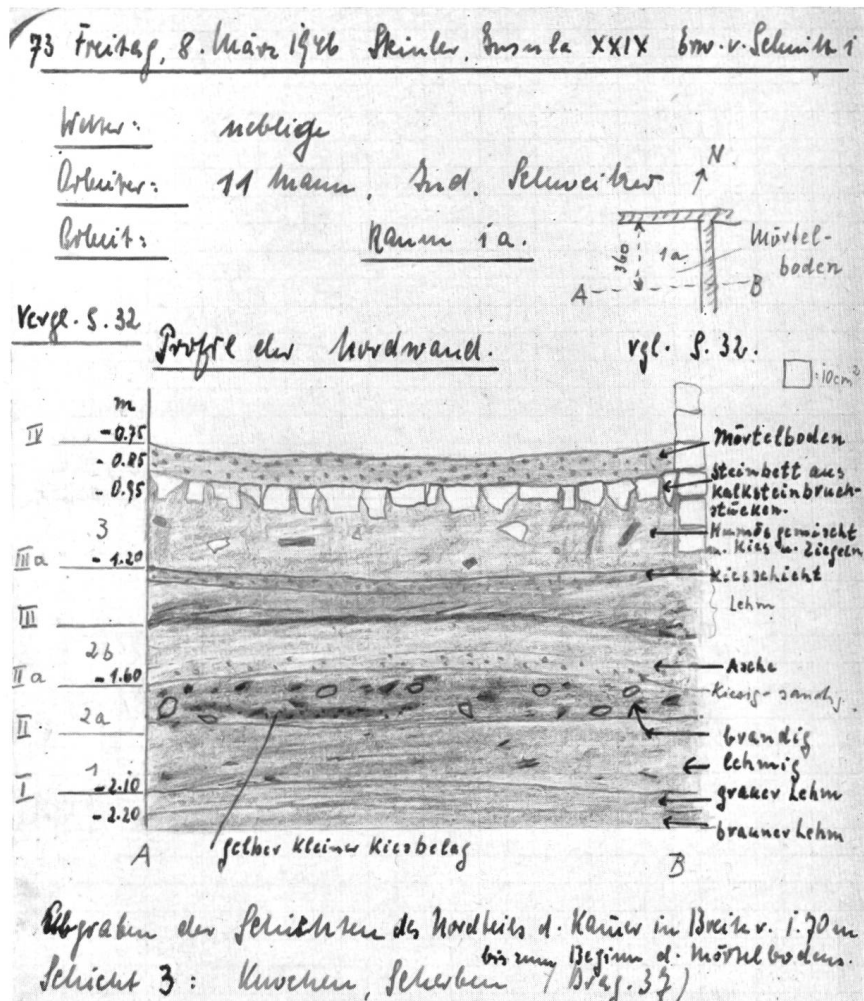 73 Freitag, 8. März 1946 Steinler, Insula XXIX Erw. v. Schnitt 1
Wetter: neblig
Arbeiter: 11 Mann, Ind. Schweitzer
Arbeit: Raum 1a.
N
360
1a
Mörtel-
boden
A
B
Vergl. S. 32
Profil der Nordwand.
vgl. S. 32.
= 10cm²
m
IV
-0.75
-0.85
-0.95
3
IIIa
-1.20
III
2b
IIa
-1.60
2a
II
1
I
-2.10
-2.20
Mörtelboden
Steinbett aus
Kalksteinbruch-
stücken.
Humös gemischt
m. Kies u. Ziegeln
Kiesschicht
Lehm
Asche
Kiesig-sandig
brandig
lehmig
grauer Lehm
brauner Lehm
A
gelber kleiner Kiesbelag
B
Abgraben der Schichten des Nordteils d. Kamer in Breite v. 1.70 m
bis zum Beginn d. Mörtelbodens.
Schicht 3: Knochen, Scherben / Drag. 37)